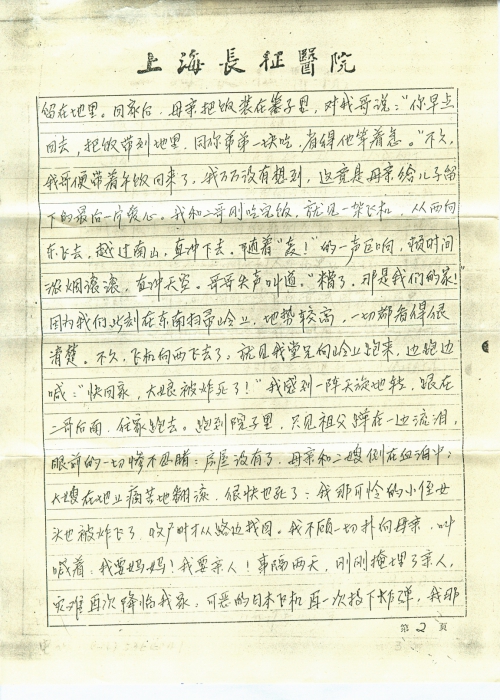 上海長征醫院
留在地里。回家后，母亲把饭装在篓子里，对我哥说："你早点
回去，把饭带到地里，同你弟弟一块吃，省得他等着急。"不久，
我哥便带着午饭回来了，我万万没有想到，这竟是母亲给儿子留
下的最后一片爱心。我和二哥刚吃完饭，就见一架飞机，从西向
东飞去，越过南山，直冲下去。随着"轰！"的一声巨响，顿时间
浓烟滚滚，直冲天空。哥哥失声叫道。"糟了，那是我们的家！"
因为我们此刻在东南扫帚岭上，地势较高，一切都看得很
清楚。不久，飞机向西飞去了，就见我堂兄向岭上跑来，边跑边
喊："快回家，大娘被炸死了！"我感到一阵天旋地转，跟在
二哥后面，往家跑去。跑到院子里，只见祖父蹲在一边流泪，
眼前的一切惨不忍睹：房屋没有了，母亲和二嫂倒在血泊中；
大嫂在地上痛苦地翻滚，很快也死了；我那可怜的小侄女
头也被炸飞了，收尸时才从路边找回。我不顾一切扑向母亲，叫
喊着，我要妈妈！我要亲人！事隔两天，刚刚掩埋了亲人，
灾难再次降临我家，可恶的日本飞机再一次投下炸弹，我那
第2頁